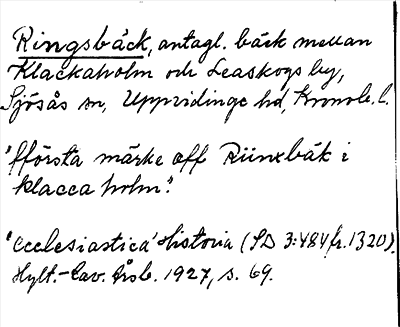 Ringsbäck, antagl. bäck mellan
Klackaholm och Leaskogs by,
Sjösås sn, Uppvidinge hd, Kronob. l.
"fförsta märke aff Rünxbäk i
klacca holm".
'Ecclesiastica' Historia (SD 3:484 fr. 1320).
Hylt.-Cav. Årsb. 1927, s. 69.